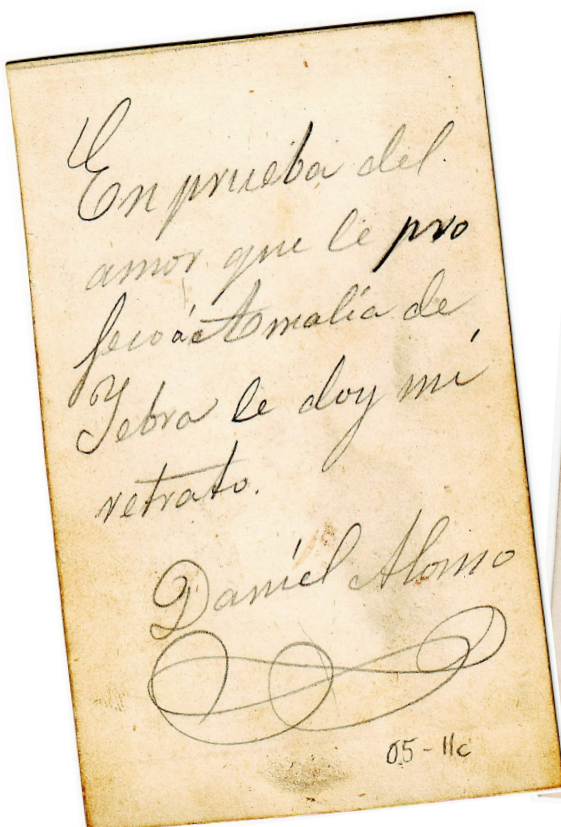 En prueba del
amor que le pro
feso á Amalia de
Yebra le doy mi
retrato.
Daniel Alonso
05-11c